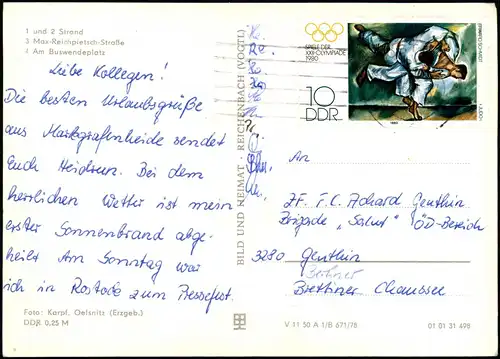 1 und 2 Strand
3 Max-Reichpietsch-Straße
4 Am Buswendeplatz
Liebe Kollegen!
Die besten Urlaubsgrüße
aus Markgrafenheide sendet
Euch Heidrun. Bei dem
herrlichen Wetter ist mein
erster Sonnenbrand abge-
heilt. Am Sonntag war
ich in Rostock zum Pressefest.
Foto: Karpf, Oelsnitz (Erzgeb.)
DDR 0,25 M
BILD UND HEIMAT · REICHENBACH (VOGTL)
SPIELE DER
XXII. OLYMPIADE
1980
10
DDR
1980
An
ZF. F.C. Achard Genthin
Brigade "Salut" ÖD-Bereich
3280 Genthin
Berliner
Brettiner Chaussee
V 11 50 A 1/B 671/78
01 01 31 498